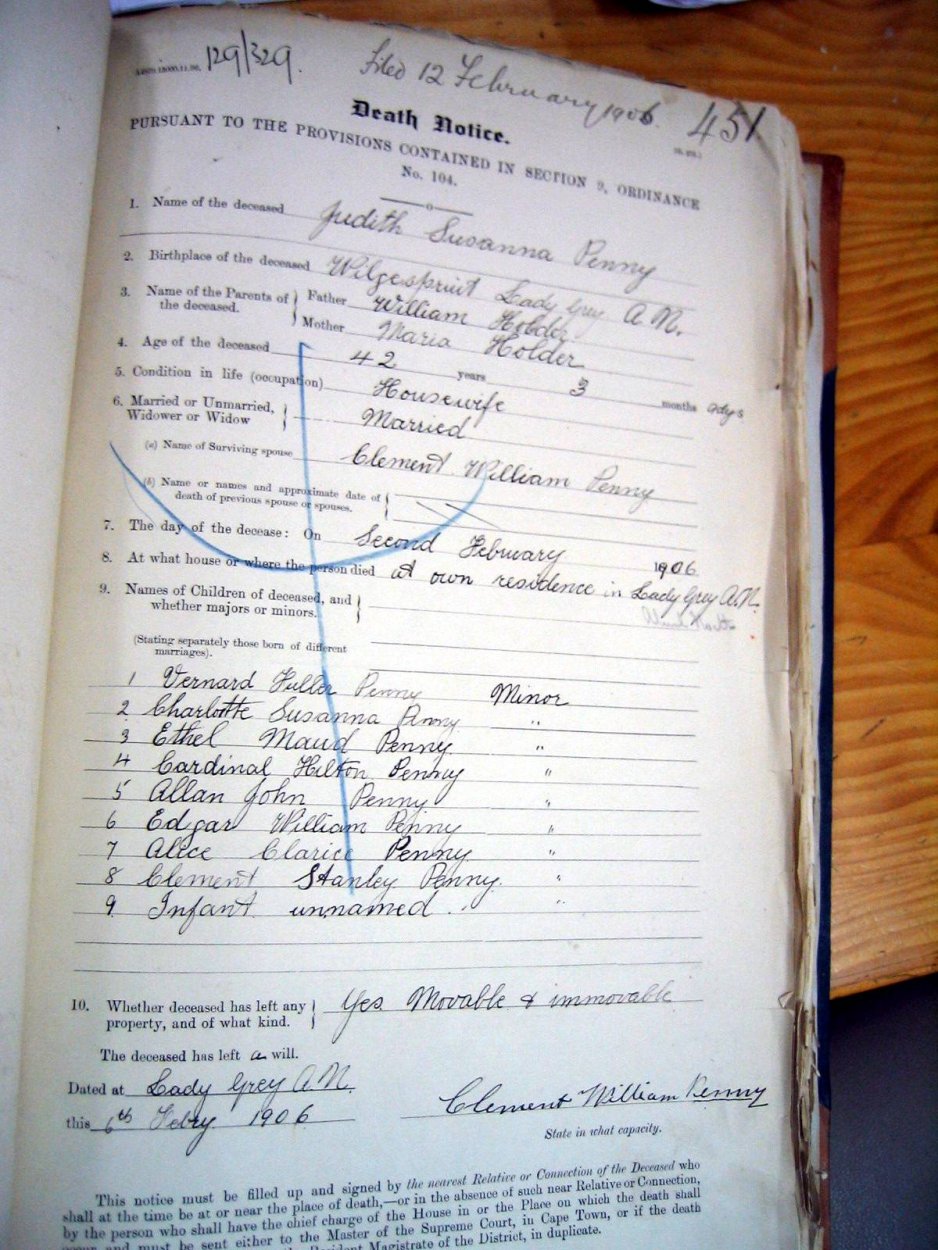 129/329. Filed 12 February 1906. 451
Death Notice.
PURSUANT TO THE PROVISIONS CONTAINED IN SECTION 9, ORDINANCE
No. 104.
1. Name of the deceased Judith Susanna Penny
2. Birthplace of the deceased Wilgespruit Lady Grey A.N.
3. Name of the Parents of the deceased. Father William Holder
Mother Maria Holder
4. Age of the deceased 42 years 3 months days
5. Condition in life (occupation) Housewife
6. Married or Unmarried, Widower or Widow Married
(a) Name of Surviving spouse Clement William Penny
(b) Name or names and approximate date of death of previous spouse or spouses.
7. The day of the decease: On Second February 1906
8. At what house or where the person died at own residence in Lady Grey A.N.
9. Names of Children of deceased, and
whether majors or minors.
(Stating separately those born of different
marriages).
1 Vernard Fuller Penny Minor
2 Charlotte Susanna Penny "
3 Ethel Maud Penny "
4 Cardinal Hilton Penny "
5 Allan John Penny "
6 Edgar William Penny "
7 Alice Clarice Penny "
8 Clement Stanley Penny. "
9 Infant unnamed "
10. Whether deceased has left any property, and of what kind. Yes Movable & immovable
The deceased has left a will.
Dated at Lady Grey A.N.
this 6th Febry 1906 Clement William Penny
State in what capacity.
This notice must be filled up and signed by the nearest Relative or Connection of the Deceased who
shall at the time be at or near the place of death,—or in the absence of such near Relative or Connection,
by the person who shall have the chief charge of the House in or the Place on which the death shall
occur and must be sent either to the Master of the Supreme Court, in Cape Town, or if the death
Resident Magistrate of the District, in duplicate.